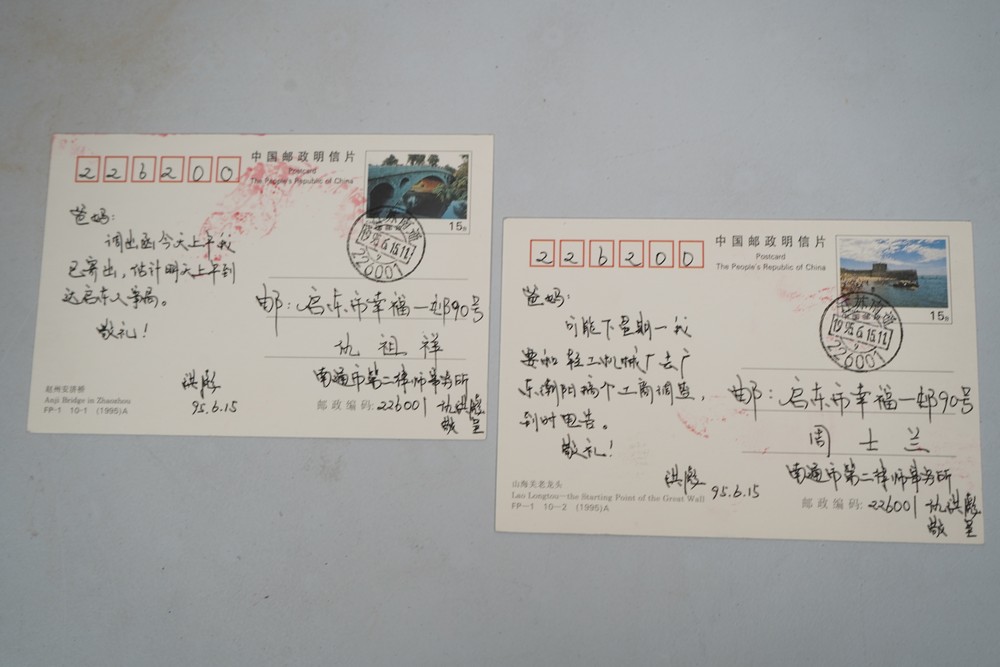 226200
中国邮政明信片
Postcard
The People's Republic of China
15分
江苏南通
1995.6.15.11
226001
爸妈:
调出函今天上午我
已寄出,估计明天上午到
达启东人事局。
敬礼!
洪彪
95.6.15
邮:启东市幸福一邨90号
仇祖祥
南通市第二律师事务所
邮政编码:226001 仇洪彪
敬呈
赵州安济桥
Anji Bridge in Zhaozhou
FP-1 10-1 (1995)A
226200
中国邮政明信片
Postcard
The People's Republic of China
15分
江苏南通
1995.6.15.11
226001
爸妈:
可能下星期一我
要和轻工机械厂去广
东潮阳搞个工商调查,
到时电告。
敬礼!
洪彪
95.6.15
邮:启东市幸福一邨90号
周士兰
南通市第二律师事务所
邮政编码:226001 仇洪彪
敬呈
山海关老龙头
Lao Longtou—the Starting Point of the Great Wall
FP-1 10-2 (1995)A